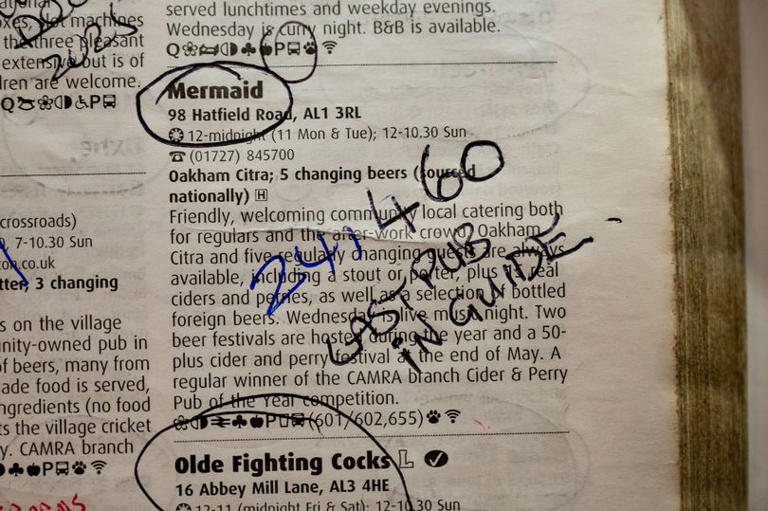 served lunchtimes and weekday evenings.
Wednesday is curry night. B&B is available.
Q P
Mermaid
98 Hatfield Road, AL1 3RL
12-midnight (11 Mon & Tue); 12-10.30 Sun
(01727) 845700
Oakham Citra; 5 changing beers (sourced
nationally) H
Friendly, welcoming community local catering both
for regulars and the after-work crowd. Oakham
Citra and five regularly changing guests are always
available, including a stout or porter, plus real
ciders and perries, as well as a selection of bottled
foreign beers. Wednesday is live music night. Two
beer festivals are hosted during the year and a 50-
plus cider and perry festival at the end of May. A
regular winner of the CAMRA branch Cider & Perry
Pub of the Year competition.
P (601/602,655)
24,460
LAST PUB
IN GUIDE
Olde Fighting Cocks L
16 Abbey Mill Lane, AL3 4HE
12-11 (midnight Fri & Sat); 12-10.30 Sun
machines
the three pleasant
but is of
ren are welcome.
Q P
crossroads)
, 7-10.30 Sun
.co.uk
tter, 3 changing
s on the village
nity-owned pub in
f beers, many from
ade food is served,
ngredients (no food
ts the village cricket
y. CAMRA branch
P